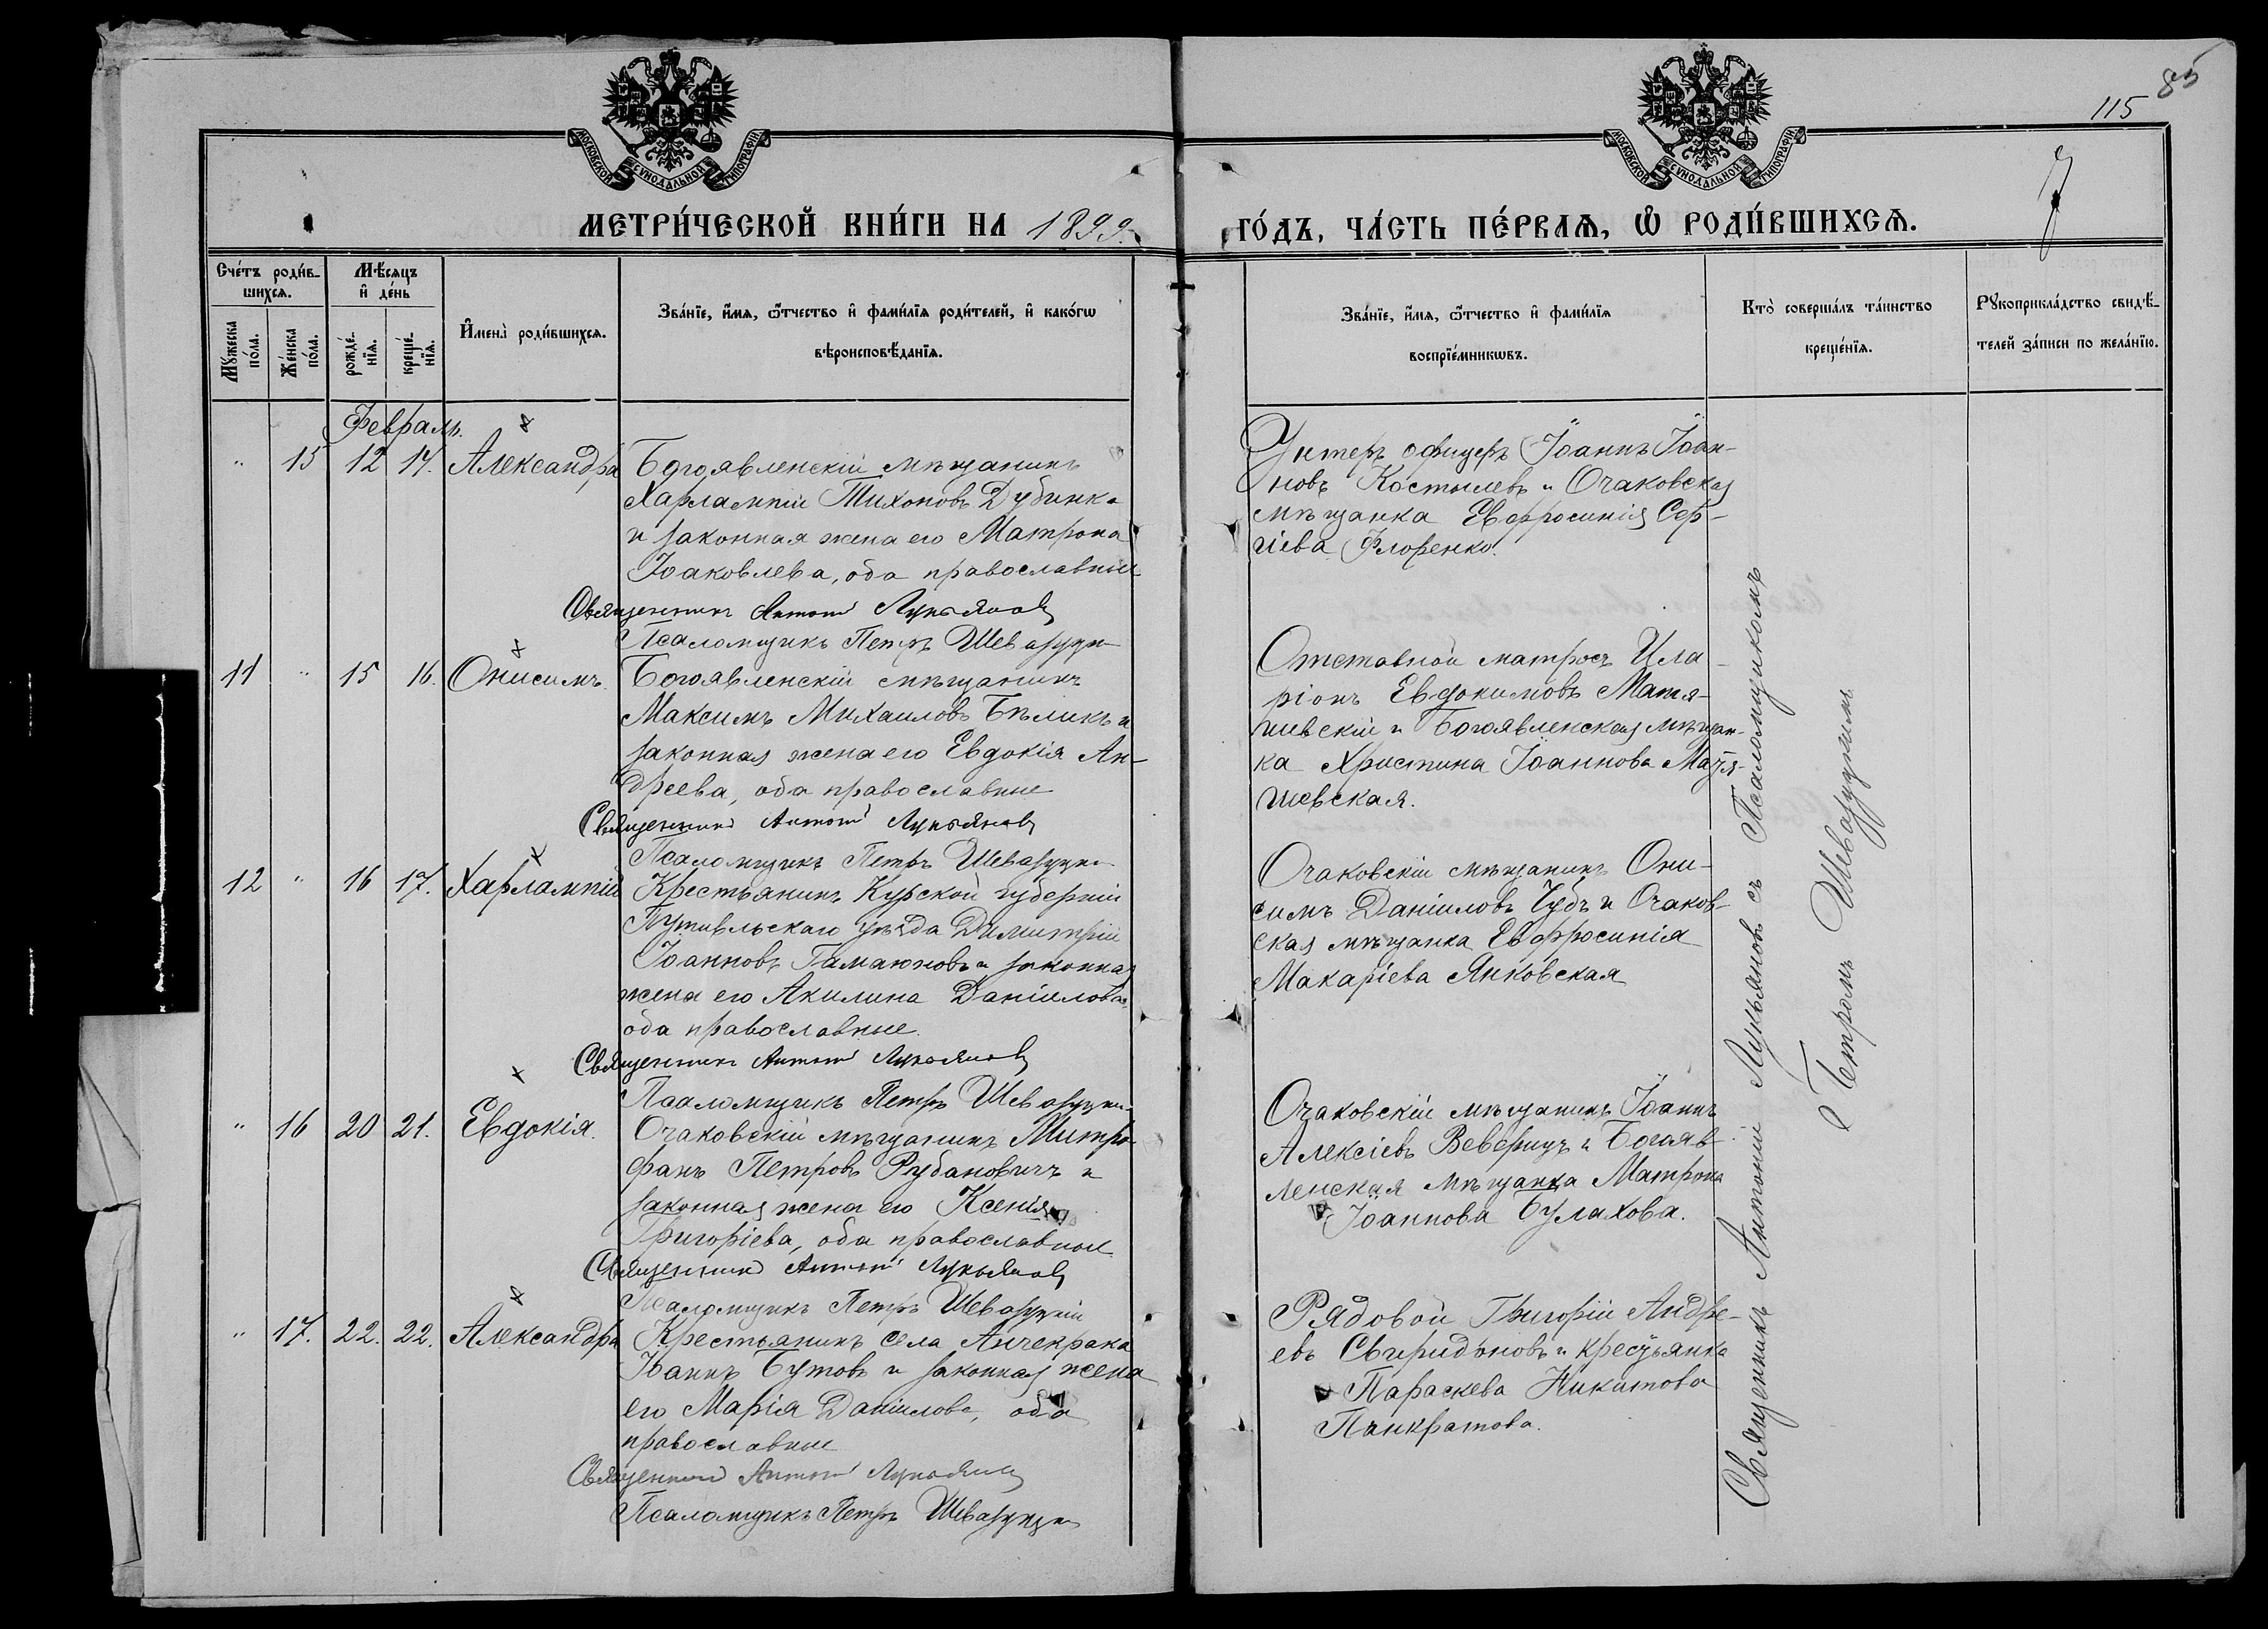 85
115
7
МОСКОВСКОЙ СѴНОДАЛЬНОЙ ТИПОГРАФІИ
МОСКОВСКОЙ СѴНОДАЛЬНОЙ ТИПОГРАФІИ
МЕТРИ́ЧЕСКОЙ КНИ́ГИ НА 1899.
ГО́ДЪ, ЧА́СТЬ ПЕ́РВАѦ, Ѽ РОДИ́ВШИХСѦ.
Сче́тъ роди́в-
шихсѧ.
Мꙋ́жеска по́ла.
Же́нска по́ла.
Мѣ́сѧцъ
и҆ де́нь
рожде́-
нїѧ.
креще́-
нїѧ.
И҆мена̀ роди́вшихсѧ.
Зва́нїе, и҆́мѧ, ѻ҆́тчество и҆ фами́лїѧ роди́телей, и҆ како́гѡ
вѣроисповѣ́данїѧ.
Зва́нїе, и҆́мѧ, ѻ҆́тчество и҆ фами́лїѧ
воспрїе́мникѡвъ.
Кто̀ соверша́лъ та́инство
креще́нїѧ.
Рꙋкоприкла́дство свидѣ́-
телей за́писи по жела́нїю.
Февраль.
" 15 12 14. Александра
Богоявленскій мѣщанинъ
Харлампій Тихоновъ Дубинка
и законная жена его Матрона
Іоаковлева, оба православные
Священникъ Антоній Лукьяновъ
Псаломщикъ Петръ Шевазуцкій
Унтеръ офицеръ Іоаннъ Іоан-
новъ Костылевъ и Очаковская
мѣщанка Евфросинія Сер-
гіева Флоренко.
11 " 15 16. Онисимъ.
Богоявленскій мѣщанинъ
Максимъ Михаиловъ Бѣликъ и
законная жена его Евдокія Ан-
дреева, оба православные
Священникъ Антоній Лукьяновъ
Псаломщикъ Петръ Шевазуцкій
Отставной матросъ Ила-
ріонъ Евдокимовъ Матя-
шевскій и Богоявленская мѣщан-
ка Христина Іоаннова Матя-
шевская.
12 " 16 17. Харлампій
Крестьянинъ Курской губерніи
Путивльскаго уѣзда Димитрій
Іоанновъ Гамаюновъ и законная
жена его Акилина Даніилова,
оба православные.
Священникъ Антоній Лукьяновъ
Псаломщикъ Петръ Шевазуцкій
Очаковскій мѣщанинъ Они-
симъ Даніиловъ Чубъ и Очаков-
ская мѣщанка Евфросинія
Макаріева Янковская
" 16 20 21. Евдокія.
Очаковскій мѣщанинъ Митро-
фанъ Петровъ Рубановичъ и
законная жена его Ксенія
Григоріева, оба православные
Священникъ Антоній Лукьяновъ
Псаломщикъ Петръ Шевазуцкій
Очаковскій мѣщанинъ Іоаннъ
Алексіевъ Веверицъ и Богояв-
ленская мѣщанка Матрона
Іоаннова Булахова.
" 17. 22. 22. Александра
Крестьянинъ села Анчекрака
Іоаннъ Бутовъ и законная жена
его Марія Даніилова, оба
православные
Священникъ Антоній Лукьяновъ
Псаломщикъ Петръ Шевазуцкій
Рядовой Григорій Андре-
евъ Свиридоновъ и крестьянка
Параскева Никитова
Панкратова.
Священникъ Антоній Лукьяновъ съ Псаломщикомъ
Петромъ Шевазуцкимъ